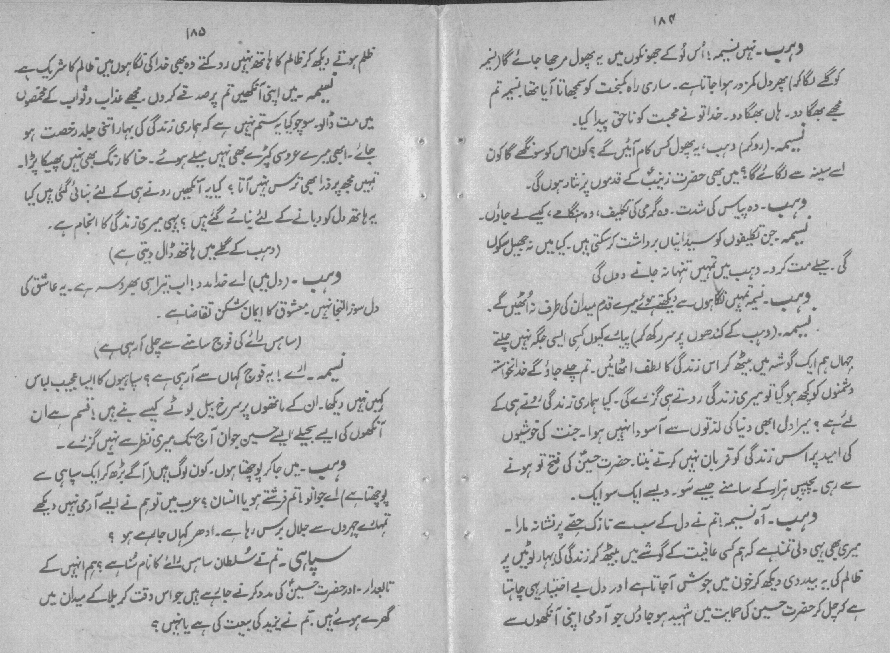 ۱۸۴
وہب۔ نہیں نسیمہ! اُس لُو کے جھونکوں میں یہ پھول مرجھا جائے گا (نسیمہ
کو گلے لگا کر) پھر دل کمزور ہوا جاتا ہے۔ ساری راہ کمبخت کو سمجھاتا آیا تھا نسیمہ تم
مجھے بھگا دو۔ ہاں بھگا دو۔ خدا تو نے محبت کو ناحق پیدا کیا۔
نسیمہ۔ (روکر) وہب، یہ پھول کس کام آئیں گے؟ کون اس کو سونگھے گا کون
اسے سینہ سے لگائے گا؟ میں بھی حضرت زینبؑ کے قدموں پر نثار ہوں گی۔
وہب۔ وہ پیاس کی شدت۔ وہ گرمی کی تکلیف، وہ ہنگامے، کیسے لے جاؤں۔
نسیمہ۔ جن تکلیفوں کو سیدانیاں برداشت کر سکتی ہیں۔ کیا میں نہ جھیل سکوں
گی۔ حیلے مت کرو۔ وہب میں تمہیں تنہا نہ جانے دوں گی
وہب۔ نسیمہ تمہیں نگاہوں سے دیکھتے ہوئے میرے قدم میدان کی طرف نہ اُٹھیں گے۔
نسیمہ۔ (وہب کے کندھوں پر سر رکھ کر) پیارے کیوں کسی ایسی جگہ نہیں چلتے
جہاں ہم ایک گوشہ میں بیٹھ کر اس زندگی کا لطف اٹھائیں۔ تم چلے جاؤ گے خدانخواستہ
دشمنوں کو کچھ ہو گیا تو میری زندگی روتے ہی گزرے گی۔ کیا ہماری زندگی رونے ہی کے
لئے ہے؟ میرا دل ابھی دنیا کی لذتوں سے آسودا نہیں ہوا۔ جنت کی خوشیوں
کی امید پر اس زندگی کو قربان نہیں کرتے بنتا۔ حضرت حسینؑ کی فتح تو ہونے
سے رہی۔ پچیس ہزار کے سامنے جیسے سَو۔ ویسے ایک سو ایک۔
وہب۔ آہ نسیمہ! تم نے دل کے سب سے نازک حصّے پر نشانہ مارا۔
میری بھی یہی دلی تمنا ہے کہ ہم کسی عافیت کے گوشے میں بیٹھ کر زندگی کی بہار لوٹیں پر
ظالم کی یہ بیدردی دیکھ کر خون میں جوش آ جاتا ہے اور دل بے اختیار یہی چاہتا
ہے کہ چل کر حضرت حسین کی حمایت میں شہید ہو جاؤں جو آدمی اپنی آنکھوں سے
۱۸۵
ظلم ہوتے دیکھ کر ظالم کا ہاتھ نہیں روکتے وہ بھی خدا کی نگاہوں میں ظالم کا شریک ہے
نسیمہ۔ میں اپنی آنکھیں تم پر صدقے کر دوں۔ مجھے عذاب و ثواب کے مخمصوں
میں مت ڈالو۔ سوچو کیا یہ ستم نہیں ہے کہ ہماری زندگی کی بہار اتنی جلد رخصت ہو
جائے۔ ابھی میرے عروسی کپڑے بھی نہیں میلے ہوئے۔ حنا کا رنگ بھی نہیں پھیکا پڑا۔
تمہیں مجھ پر ذرا بھی ترس نہیں آتا؟ کیا یہ آنکھیں رونے ہی کے لئے بنائی گئی ہیں کیا
یہ ہاتھ دل کو دبانے کے لئے بنائے گئے ہیں؟ یہی میری زندگی کا انجام ہے۔
(وہب کے گلے میں ہاتھ ڈال دیتی ہے)
وہب۔ (دل میں) اے خدا مدد! اب تیرا ہی بھروسہ ہے۔ یہ عاشق کی
دل سوز التجا نہیں۔ معشوق کا ایمان شکن تقاضا ہے۔
(ساہس رائے کی فوج سامنے سے چلی آ رہی ہے)
نسیمہ۔ ارے! یہ فوج کہاں سے آ رہی ہے؟ سپاہیوں کا ایسا عجیب لباس
کہیں نہیں دیکھا۔ ان کے ماتھوں پر سرخ بیل بوٹے کیسے بنے ہیں! قسم ہے ان
آنکھوں کی ایسے سجیلے، ایسے حسین جوان آج تک میری نظر سے نہیں گزرے۔
وہب۔ میں جا کر پوچھتا ہوں۔ کون لوگ ہیں (آگے بڑھ کر ایک سپاہی سے
پوچھتا ہے) اے جوانو! تم فرشتے ہو یا انسان؟ عرب میں تو ہم نے ایسے آدمی نہیں دیکھے
تمہارے چہروں سے جلال برس رہا ہے۔ ادھر کہاں جا رہے ہو؟
سپاہی۔ تم نے سُلطان ساہس رائے کا نام سُنا ہے؟ ہم انہیں کے
تابعدار۔ اور حضرت حسینؑ کی مدد کرنے جا رہے ہیں جو اس وقت کربلا کے میدان میں
گھرے ہوئے ہیں۔ تم نے یزید کی بیعت کی ہے یا نہیں؟